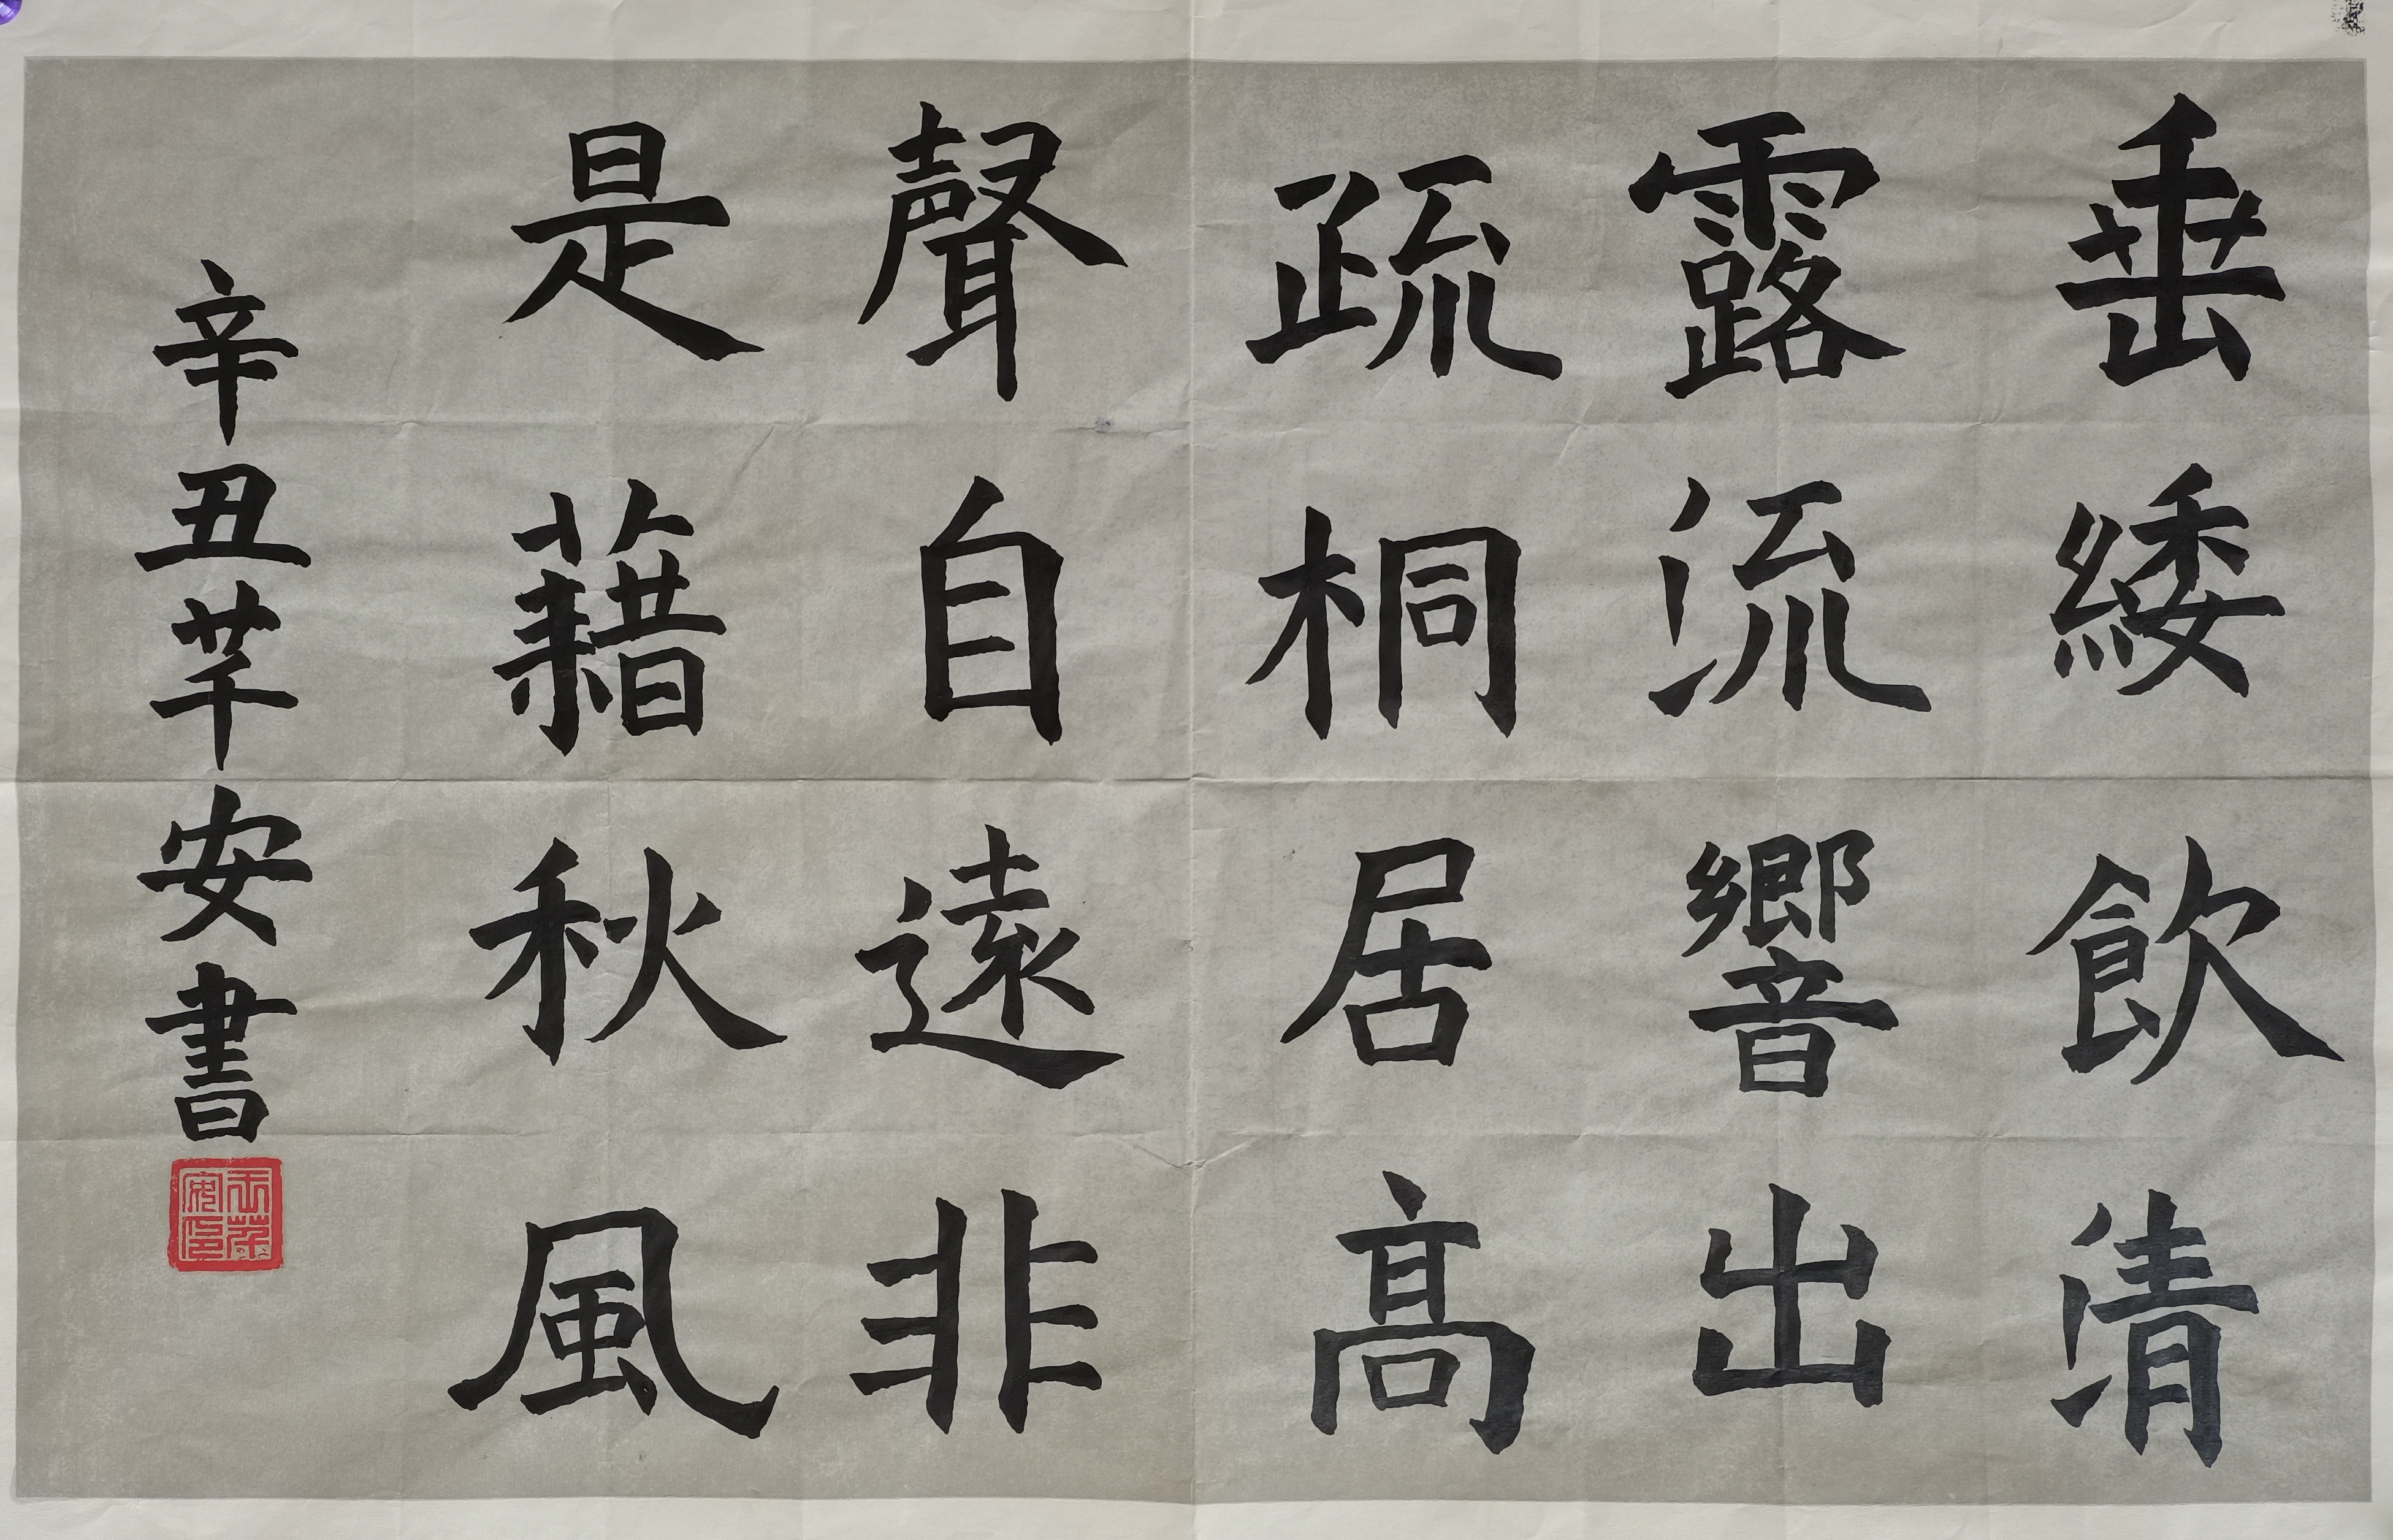 垂緌飲清
露流響出
疏桐居高
聲自遠非
是藉秋風
辛丑芊安書